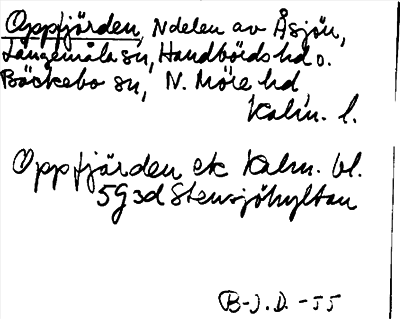 Oppfjärden, Ndelen av Åsjön,
Långemåla sn, Handbörds hd o.
Bäckebo sn, N. Möre hd,
Kalm. l.
Oppfjärden ek Kalm. bl.
5G3d Stensjöhyltan
B-J.D. -55